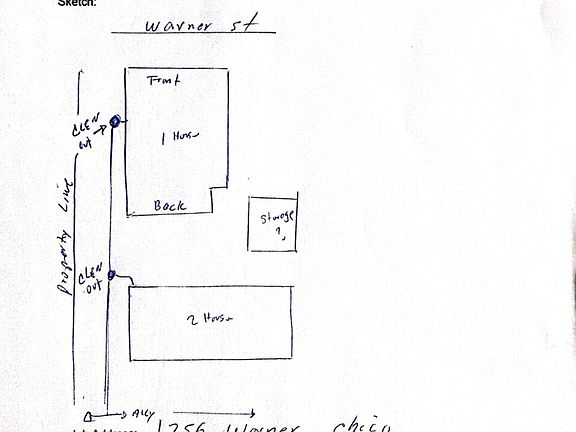 Sketch:
Warner St
Front
CLEN
out
1 House
Back
Property Line
Storage
?
CLEN
out
2 House
Ally
1256 Warner chico